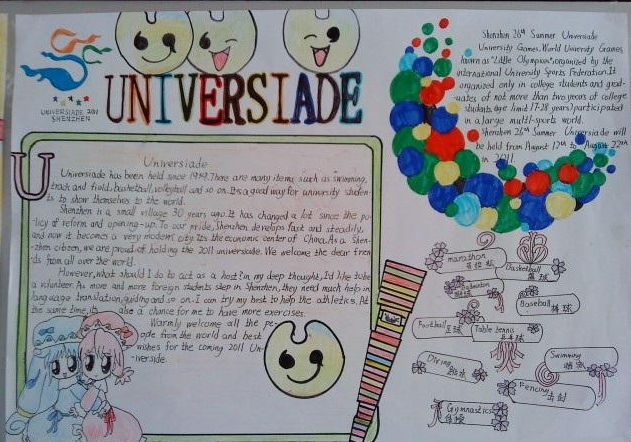 UNIVERSIADE 2011
SHENZHEN
UNIVERSIADE
Universiade
Universiade has been held since 1959.There are many items such as swimming,
track and field, basketball, volleyball and so on. It's a good way for university studen-
ts to show themselves to the world.
Shenzhen is a small village 30 years ago. It has changed a lot since the po-
-licy of reform and opening-up. To our pride, Shenzhen develops fast and steadily,
and now it becomes a very modern city. It's the economic center of China. As a Shen-
-zhen citizen, we are proud of holding the 2011 universiade. We welcome the dear frien-
ds from all over the world.
However, what should I do to act as a host? in my deep thought, I'd like to be
a volunteer. As more and more foreign students step in Shenzhen, they need much help in
language translation, guiding and so on. I can try my best to help the athletics. At
the same time, it's also a chance for me to have more exercises.
Warmly welcome all the pe-
ople from the world and best
wishes for the coming 2011 Un-
-iverside.
U
Shenzhen 26th Summer Unversiade
University Games, World University Games,
known as "Little Olympics", organized by the
international University Sports Federation. It
organized only in college students and grad-
uates of not more than two years of college
students (age limit 17-28 years) participated
in a large multi-sports world.
Shenzhen 26th Summer Universiade will
be held from August 12th to August 22th
in 2011.
marathon
马拉松
Basketball
篮球
Badminton
Baseball 棒球
Football 足球
Table tennis
乒乓球
Diving
跳水
Swimming
游泳
Fencing 击剑
Gymnastics
体操